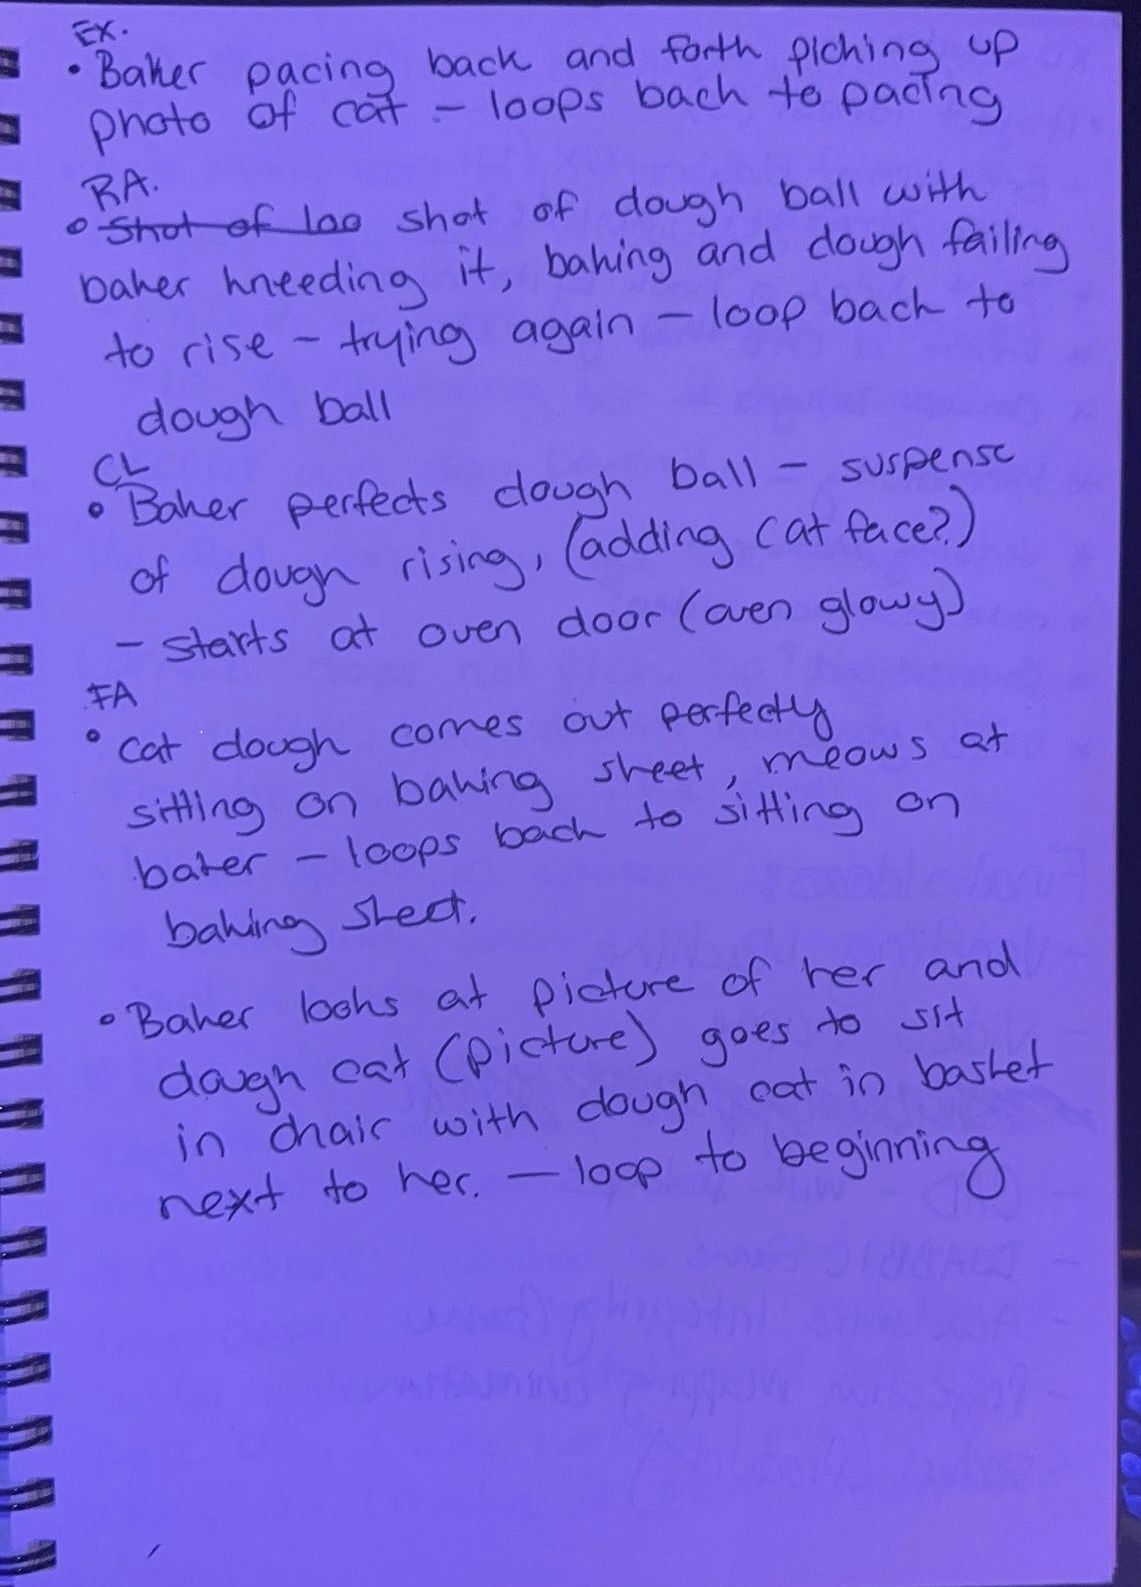 EX.
• Baker pacing back and forth picking up
photo of cat - loops back to pacing
RA.
• Shot of loo shot of dough ball with
baker kneeding it, baking and dough failing
to rise - trying again - loop back to
dough ball
CL
• Baker perfects dough ball - suspense
of dough rising, (adding cat face?)
- starts at oven door (oven glowy)
FA
• cat dough comes out perfectly
sitting on baking sheet, meows at
baker - loops back to sitting on
baking sheet.
• Baker looks at picture of her and
dough cat (picture) goes to sit
in chair with dough cat in basket
next to her. - loop to beginning